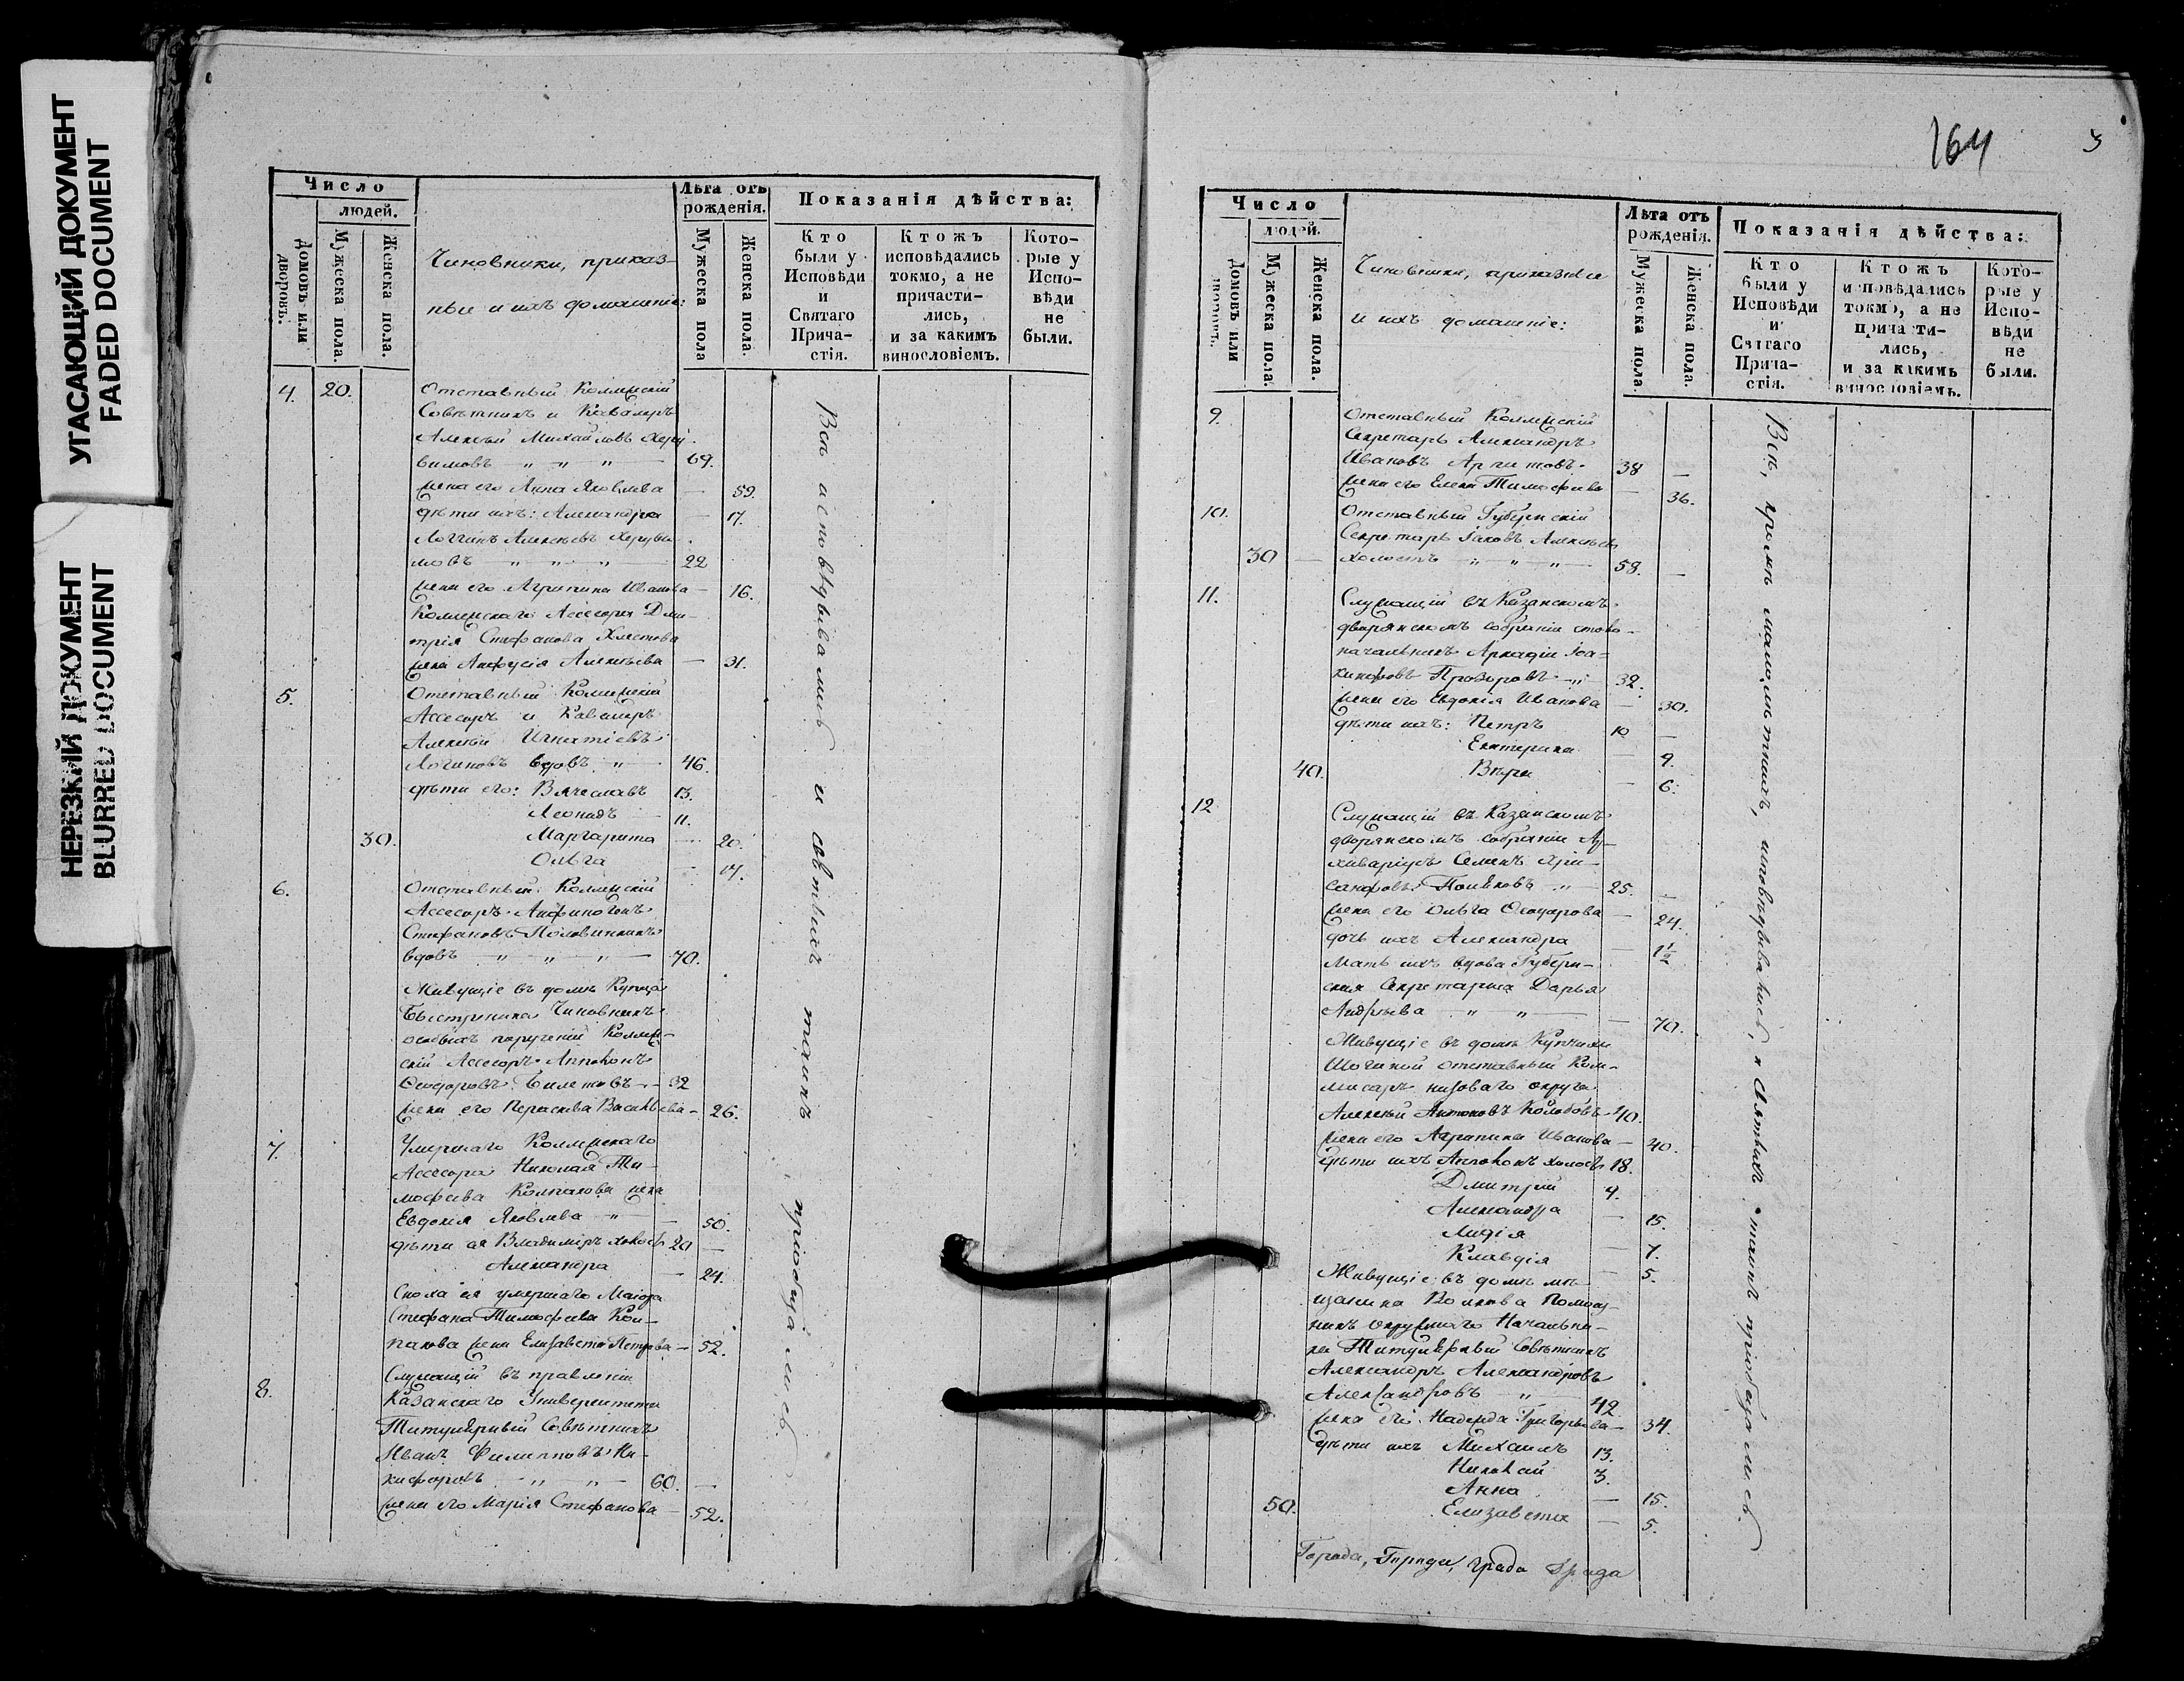 УГАСАЮЩИЙ ДОКУМЕНТ
FADED DOCUMENT
НЕРЕЗКИЙ ДОКУМЕНТ
BLURRED DOCUMENT
Число
людей.
Домовъ или дворовъ.
Мужеска пола.
Женска пола.
Чиновники, приказ-
ные и ихъ домашніе:
Лѣта отъ
рожденія.
Мужеска пола
Женска пола.
Показанія дѣйства:
Кто
были у
Исповѣди
и
Святаго
Прича-
стія.
Ктожъ
исповѣдались
токмо, а не
причасти-
лись,
и за какимъ
винословіемъ.
Кото-
рые у
Испо-
вѣди
не
были.
4. 20. Отставный Коллежскій
Совѣтникъ и Кавалеръ
Алексѣй Михайловъ Херу-
вимовъ " " " 69.
жена его Анна Яковлева — 59.
дѣти ихъ: Александра — 17.
Логгинъ Алексѣевъ Херуви-
мовъ " " " 22
жена его Агрипина Иванова — 16.
Коллежскаго Ассесора Дми-
трія Стефанова Хлестова
жена Анфусія Алексѣева — 31.
5. Отставный Коллежскій
Ассесоръ и Кавалеръ
Алексѣй Игнатіевъ
Логиновъ вдовъ " 46.
дѣти его: Вячеславъ 13.
Леонидъ 11.
30. Маргарита — 20.
Ольга — 17.
6. Отставный Коллежскій
Ассесоръ Анфиногенъ
Стефановъ Половинкинъ
вдовъ " " " 70.
Живущіе въ домѣ Купца
Чиновникъ
особыхъ порученій Коллеж-
скій Ассесоръ Апполонъ
Ѳеодоровъ 32
жена его Параскева Васильева — 26.
7. Умершаго Коллежскаго
Ассесора Николая Ти-
мофеева Колпакова жена
Евдокія Яковлева " — 50.
дѣти ея Владиміръ холостъ 20 —
Александра — 24.
Сноха ея умершаго Маіора
Стефана Тимофеева Кол-
пакова жена Елизавета Петрова — 52.
8. Служащій въ правленіи
Казанскаго Университета
Титулярный Совѣтникъ
Иванъ Филипповъ Ни-
кифоровъ " " 60. —
жена его Марія Стефанова — 52.
Всѣ исповѣдывались и святыхъ таинъ пріобщались.
164
Число
людей.
Домовъ или дворовъ.
Мужеска пола.
Женска пола.
Чиновники, приказные
и ихъ домашніе:
Лѣта отъ
рожденія.
Мужеска пола.
Женска пола.
Показанія дѣйства:
Кто
были у
Исповѣди
и
Святаго
Прича-
стія.
Ктожъ
исповѣдались
токмо, а не
причасти-
лись,
и за какимъ
винословіемъ.
Кото-
рые у
Испо-
вѣди
не
были.
9. Отставный Коллежскій
Секретарь Александръ
Ивановъ 38 —
жена его Елена Тимофеева — 36.
10. Отставный Губернскій
Секретарь Іаковъ Алексѣевъ
30 — холостъ " " " 58. —
11. Служащій въ Казанскомъ
дворянскомъ собраніи столо-
начальникъ Аркадій Іоа-
кинфовъ Прозоровъ " 32.
жена его Евдокія Иванова — 30.
дѣти ихъ: Петръ 10 —
Екатерина — 9.
40. Вѣра — 6.
12 Служащій въ Казанскомъ
дворянскомъ собраніи Ар-
хиваріусъ Семенъ Хри-
санфовъ Поляковъ " 25. —
жена его Ольга Ѳеодорова — 24.
дочь ихъ Александра — 1½
Мать ихъ вдова Губерн-
ская Секретарша Дарья
Андреева " " — 70.
Живущіе въ домѣ Купчихи
отставный Ком-
мисаръ низоваго округа
Алексѣй Антоновъ Колобовъ 40.
жена его Агрипина Иванова — 40.
дѣти ихъ Апполонъ холостъ 18.
Дмитрій 9.
Александра — 15.
Лидія — 7.
Клавдія — 5.
Живущіе въ домѣ мѣ-
щанина Волкова Помощ-
никъ Окружнаго Начальни-
ка Титулярный Совѣтникъ
Александръ Александровъ
Александровъ " 42
жена его Надежда Григорьева — 34.
дѣти ихъ Михаилъ 13.
Николай 3.
Анна — 15.
50. Елизавета — 5.
Всѣ, кромѣ малолѣтнихъ, исповѣдывались, и святыхъ таинъ пріобщались.
Города, Города, града Града